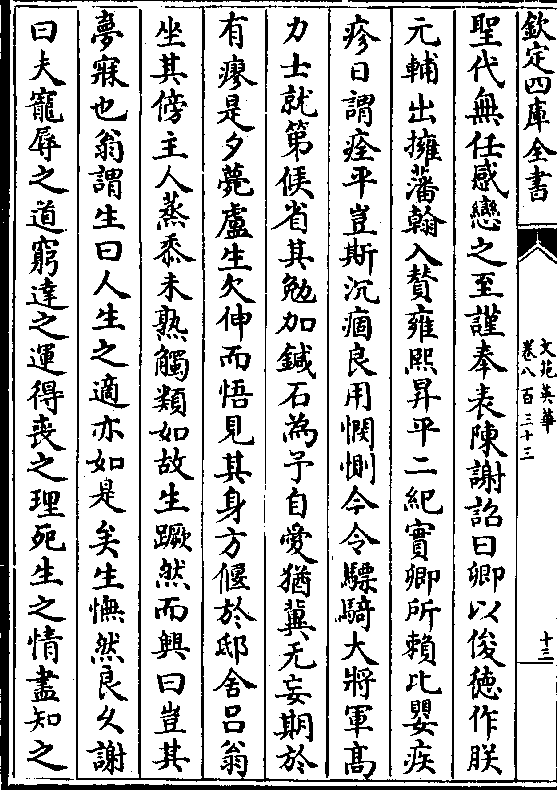 欽定四庫全書
文苑英華
卷八百三十三
十三
聖代無任感戀之至謹奉表陳謝詔曰卿以俊德作朕
元輔出擁藩翰入賛雍熙昇平二紀實卿所賴比嬰疾
疹日謂痊平豈斯沉痼良用憫惻今令驃騎大將軍髙
力士就第候省其勉加鍼石為予自愛猶冀无妄期於
有瘳是夕薨盧生欠伸而悟見其身方偃於邸舍吕翁
坐其傍主人蒸黍未熟觸類如故生蹶然而興曰豈其
夢寐也翁謂生曰人生之適亦如是矣生憮然良久謝
曰夫寵辱之道窮達之運得喪之理死生之情盡知之